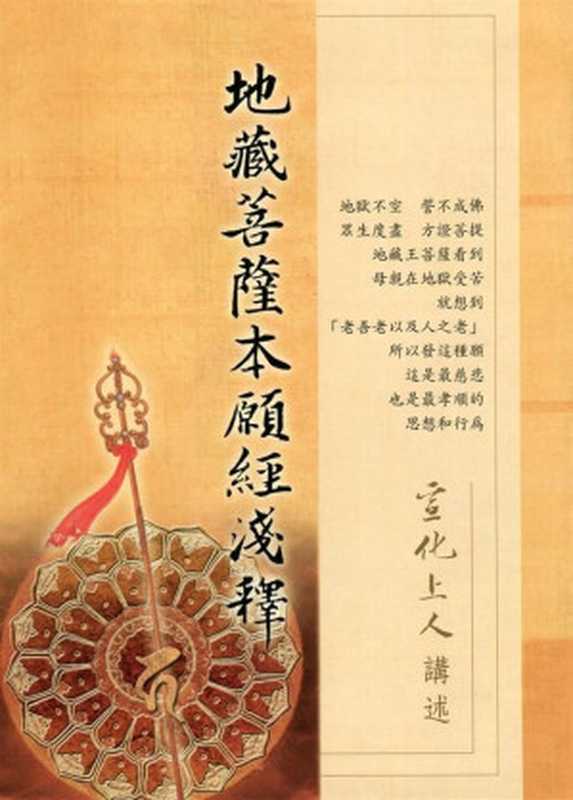 地藏菩薩本願經淺釋
地獄不空　誓不成佛
眾生度盡　方證菩提
地藏王菩薩看到
母親在地獄受苦
就想到
「老吾老以及人之老」
所以發這種願
這是最慈悲
也是最孝順的
思想和行為
宣化上人 講述